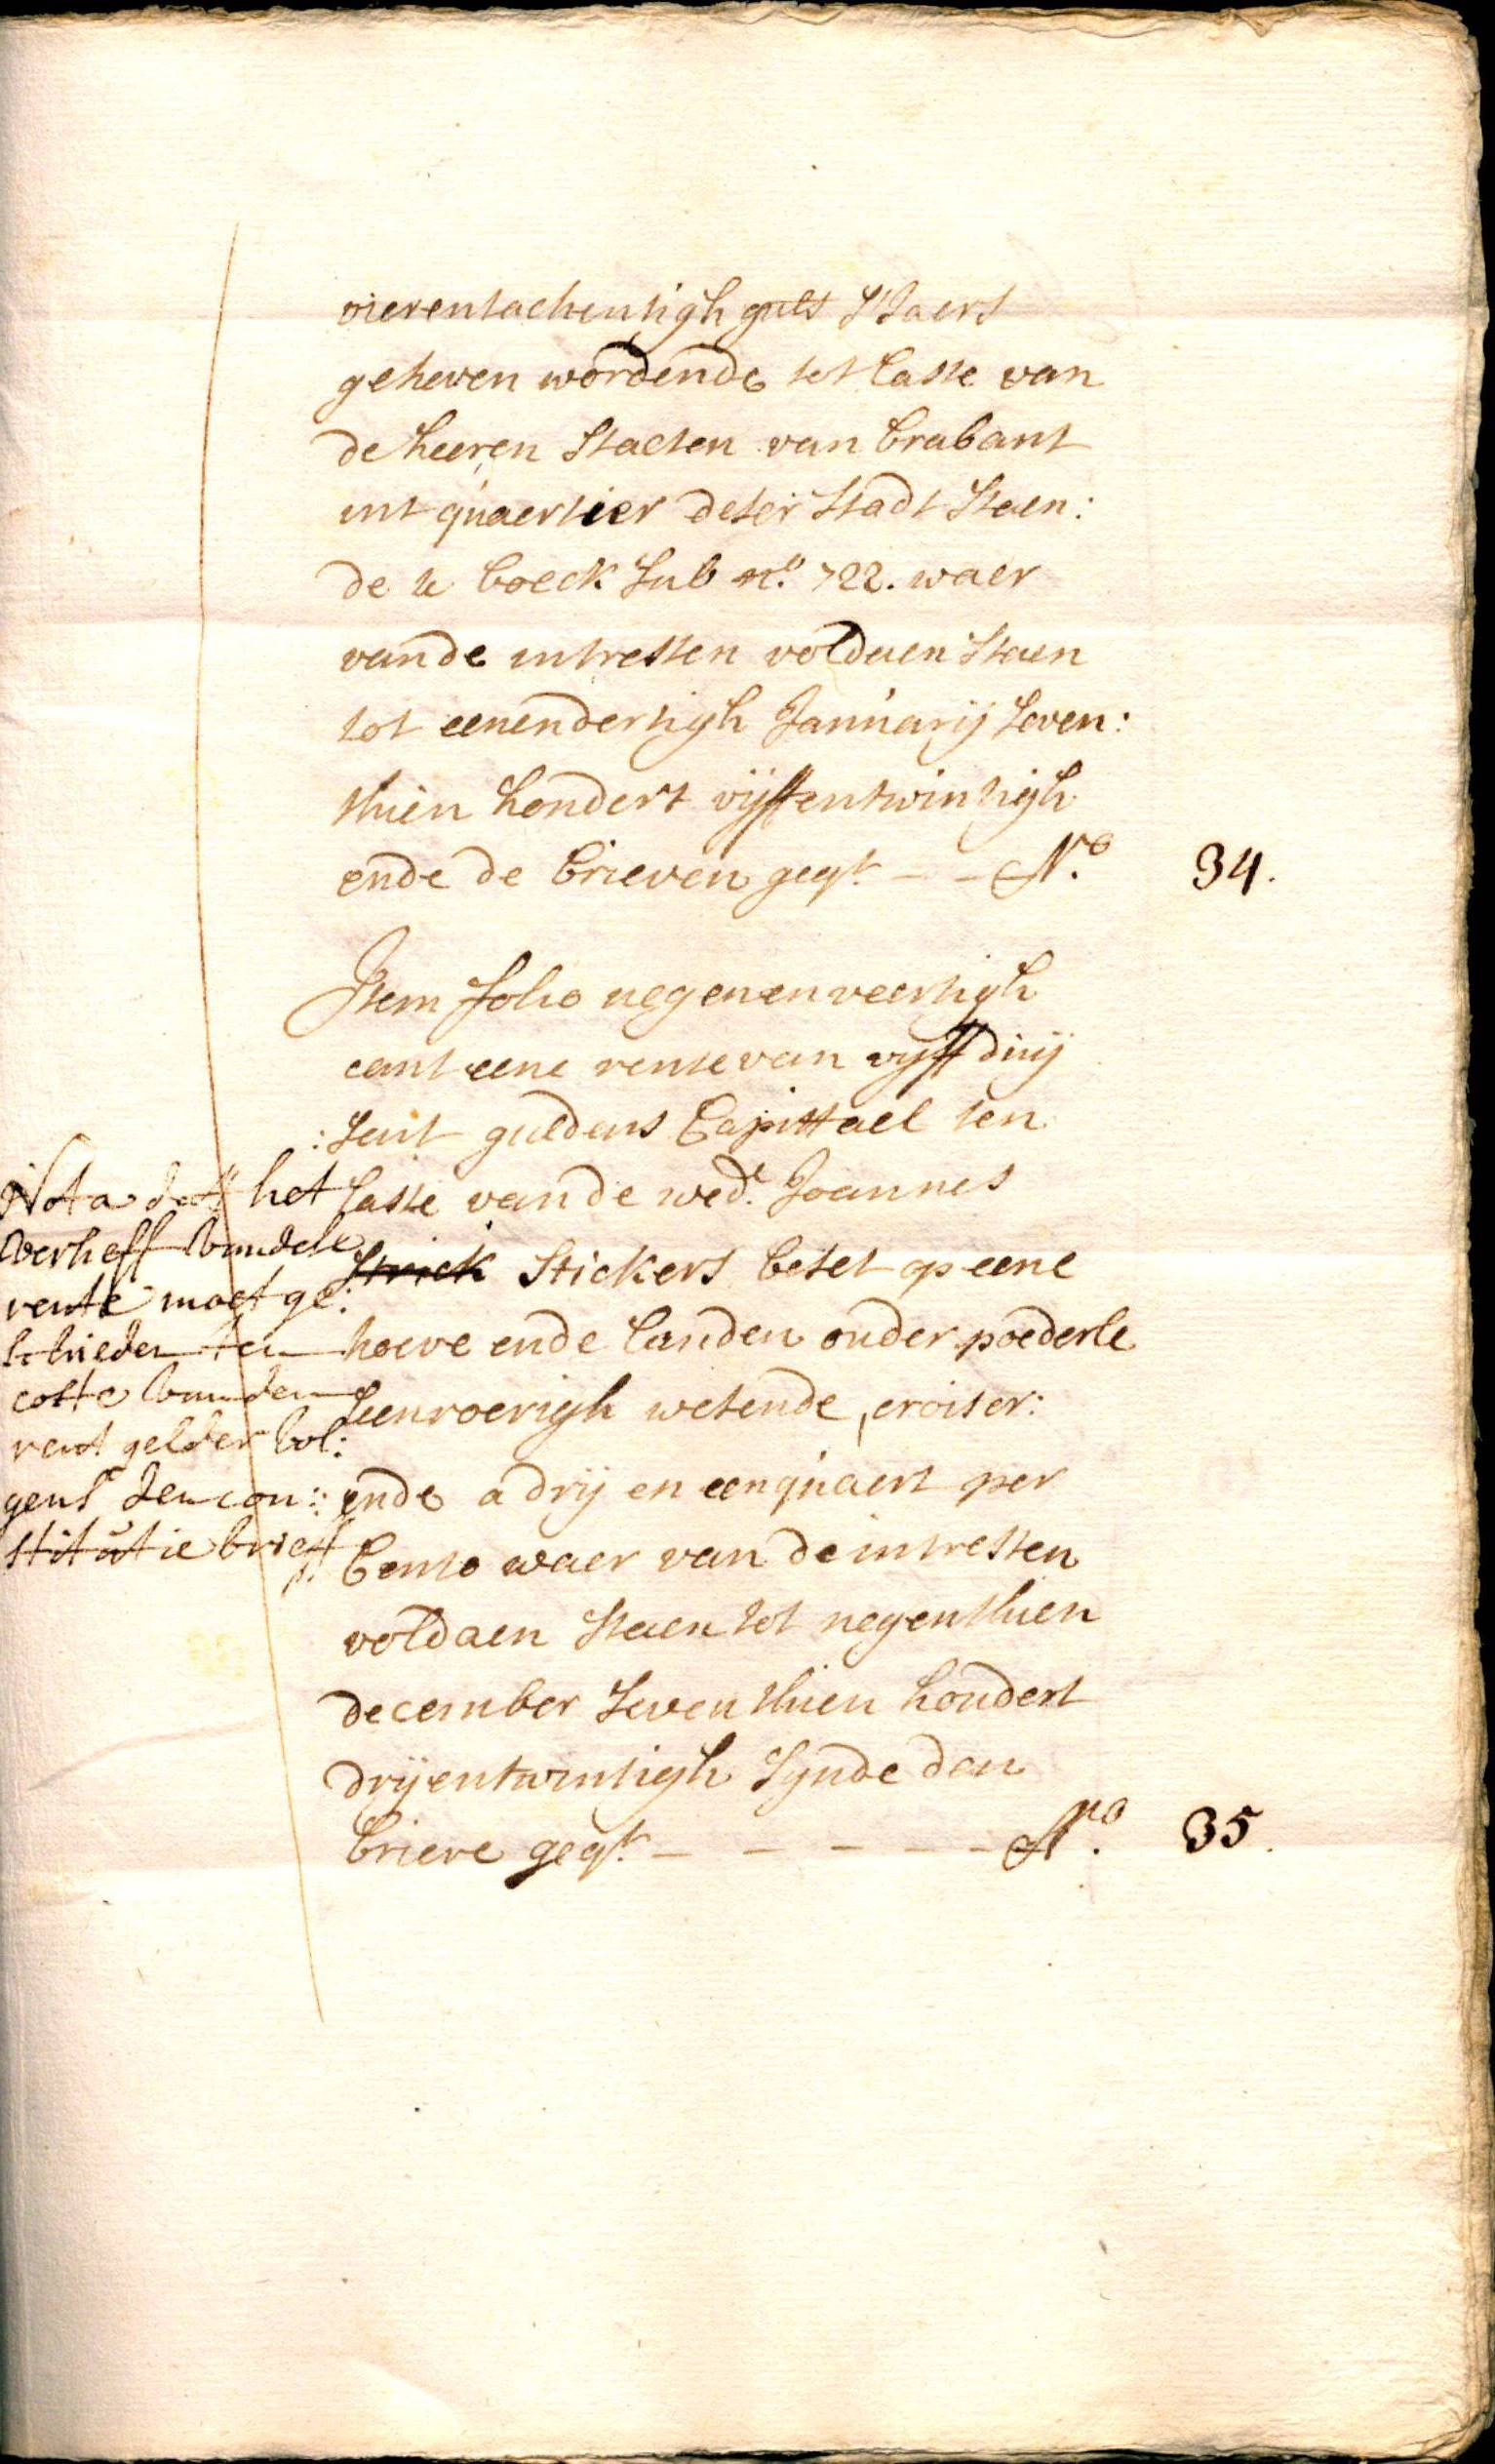 vierentachentigh guls S'Jaers
geheven wordende tot laste van
de heeren Staeten van brabant
int quaertier deser Stadt Staen:
de te boeck sub no. 722. waer
vande intresten voldaen staen
tot eenendertigh Januarij seven:
thien hondert vijffentwintigh
ende de brieven geqt. - - No. 34.
Item folio negenenveertigh
cant eene rente van vyff duij
:sent guldens Capittael ten
laste vande wede. Joannes
Strick Stickers beset op eene
hoeve ende landen onder poederle
Leenroerigh wesende, croiser:
ende a drij en een quaert per
Cento waer van de intresten
voldaen staen tot negenthien
december Seventhien hondert
drijentwintigh Synde den
brieve geqt. - - - - - No. 35.
Nota dat het
verheff vande
rente moet ge:
schieden ten
coste van den
rent gelder vol:
gens den con:
stitutie brieff